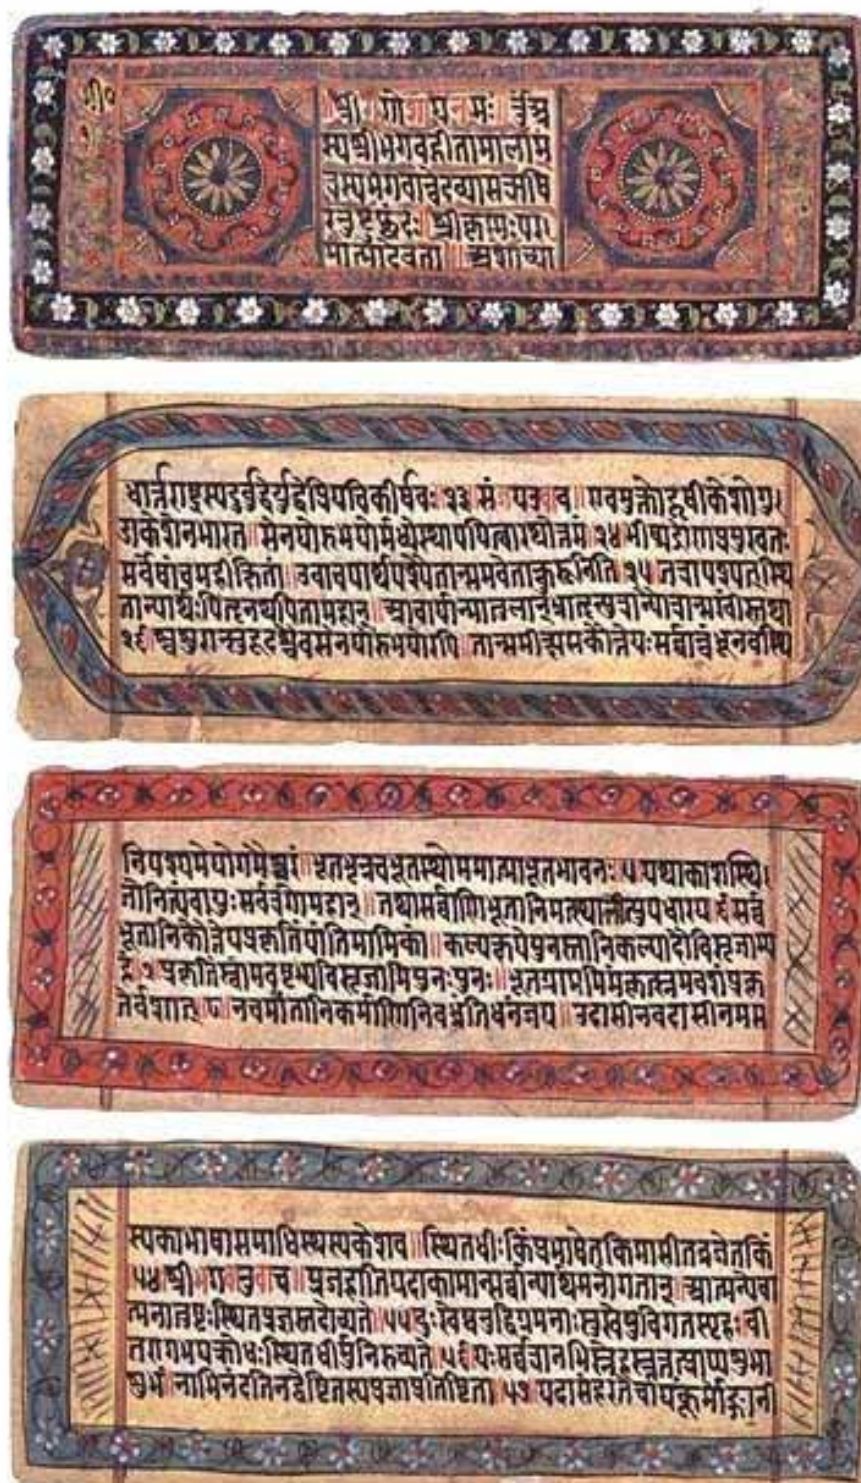 श्री ग णे शा य न मः ॐ अ
स्यश्रीभगवद्गीतामालामं
त्रस्यभगवान्वेदव्यासऋषि
रनुष्टुप्छंदः॥ श्रीकृष्णःपर
मात्मादेवता॥ अशोच्या
धार्त्तराष्ट्रस्यदुर्बुद्धेर्युद्धेप्रियचिकीर्षवः २३ संजयउवाच॥ एवमुक्तोहृषीकेशोगु
डाकेशेनभारत॥ सेनयोरुभयोर्मध्येस्थापयित्वारथोत्तमं २४ भीष्मद्रोणप्रमुखतः
सर्वेषांचमहीक्षितां॥ उवाचपार्थपश्यैतान्समवेतान्कुरूनिति २५ तत्रापश्यत्स्थि
तान्पार्थःपितॄनथपितामहान्॥ आचार्यान्मातुलान्भ्रातॄन्पुत्रान्पौत्रान्सखींस्तथा
२६ श्वशुरान्सुहृदश्चैवसेनयोरुभयोरपि॥ तान्समीक्ष्यसकौन्तेयःसर्वान्बंधूनवस्थि
निपश्यमेयोगमैश्वरं॥ भूतभृन्नचभूतस्थोममात्माभूतभावनः ५ यथाकाशस्थि
तोनित्यंवायुःसर्वत्रगोमहान्॥ तथासर्वाणिभूतानिमत्स्थानीत्युपधारय ६ सर्व
भूतानिकौन्तेयप्रकृतिंयांतिमामिकां॥ कल्पक्षयेपुनस्तानिकल्पादौविसृजाम्य
हं ७ प्रकृतिंस्वामवष्टभ्यविसृजामिपुनःपुनः॥ भूतग्राममिमंकृत्स्नमवशंप्रकृ
तेर्वशात् ८॥ नचमांतानिकर्माणिनिबध्नंतिधनंजय॥ उदासीनवदासीनमस
स्यकाभाषासमाधिस्थस्यकेशव॥ स्थितधीःकिंप्रभाषेतकिमासीतव्रजेतकिं
५४ श्रीभगवानुवाच॥ प्रजहातियदाकामान्सर्वान्पार्थमनोगतान्॥ आत्मन्येवा
त्मनातुष्टःस्थितप्रज्ञस्तदोच्यते॥ ५५ दुःखेष्वनुद्विग्नमनाःसुखेषुविगतस्पृहः॥ वी
तरागभयक्रोधःस्थितधीर्मुनिरुच्यते॥ ५६ यःसर्वत्रानभिस्नेहस्तत्तत्प्राप्यशुभा
शुभं॥ नाभिनंदतिनद्वेष्टितस्यप्रज्ञाप्रतिष्ठिता॥ ५७ यदासंहरतेचायंकूर्मोङ्गानी